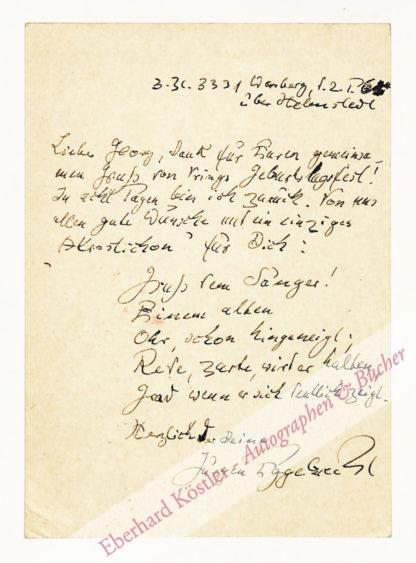 3.31. 3331 Warberg, d. 2. I. 64
über Helmstedt
Lieber Georg, Dank für Euren gemeinsa-
men Gruß von Vrings Geburtstagsfest!
In acht Tagen bin ich zurück. Von uns
allen gute Wünsche und ein einziges
"Akrostichon" für Dich:
Gruß dem Sänger!
Einem alten
Ohr, schon hingeneigt,
Rede, zarte, wird er halten,
Grad wenn er sich deutlich zeigt.
Herzlichst Deine
Jürgen Eggebrecht
Eberhard Köstler Autographen & Bücher